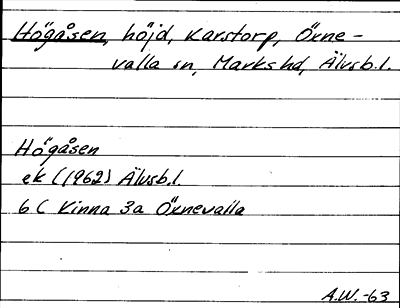 Högåsen, höjd, Karstorp, Örne-
valla sn, Marks hd, Älvsb.l.
Högåsen
ek (1962) Älvsb.l.
6 C Kinna 3a Örnevalla
A.W. -63